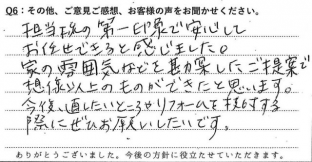 Q6：その他、ご意見ご感想、お客様の声をお聞かせください。
担当様の第一印象で安心して
お任せできると感じました。
家の雰囲気などを勘案したご提案で
想像以上のものができたと思います。
今後、直したいところやリフォームを検討する
際にぜひお願いしたいです。
ありがとうございました。今後の方針に役立たせていただきます。